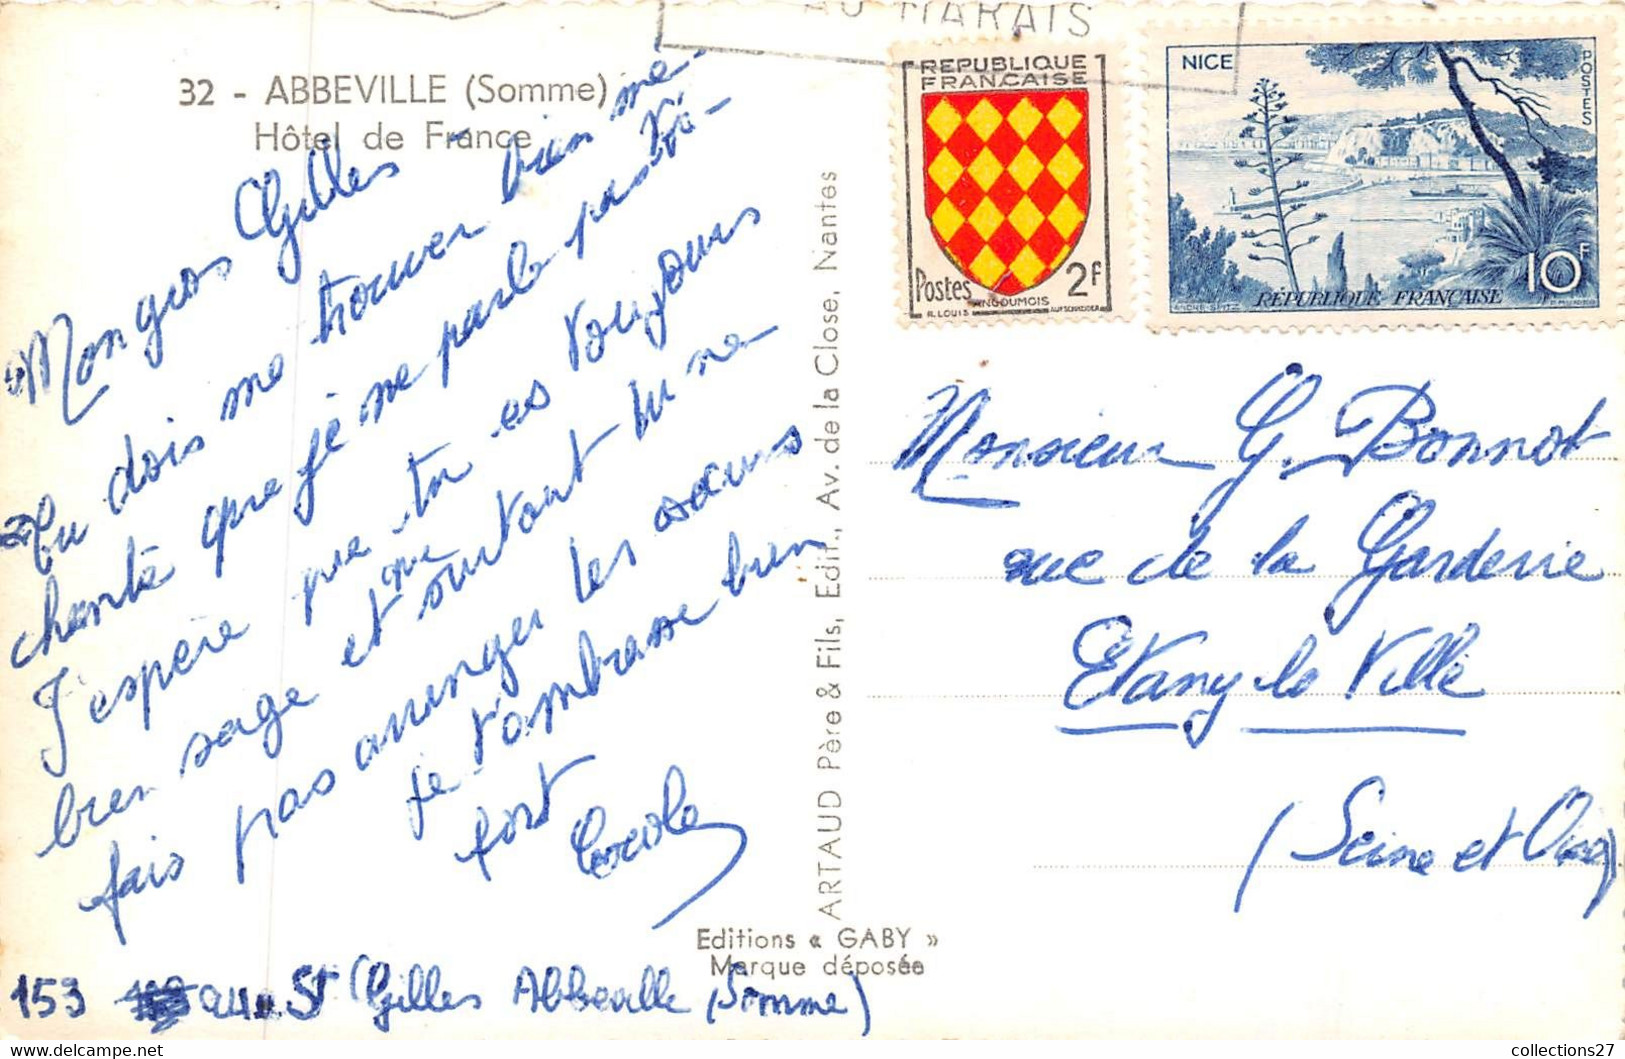 AU MARAIS
32 - ABBEVILLE (Somme)
Hôtel de France
REPUBLIQUE
FRANÇAISE
Postes 2F
ANGOUMOIS
R. LOUIS
NICE
POSTES
10F
RÉPUBLIQUE FRANÇAISE
Mon gros Gilles
Tu dois me trouver bien mé-
chante que je ne parle pas
J'espère que tu es toujours
bien sage et que surtout tu ne
fais pas les sœurs
Je t'embrasse bien
fort
ARTAUD Père & Fils, Edit., Av. de la Close, Nantes
Monsieur G. Bonnot
rue de la Garderie
Etany la Ville
(Seine et Oise)
Editions « GABY »
Marque déposée
153 St Gilles Abbeville (Somme)
collections27